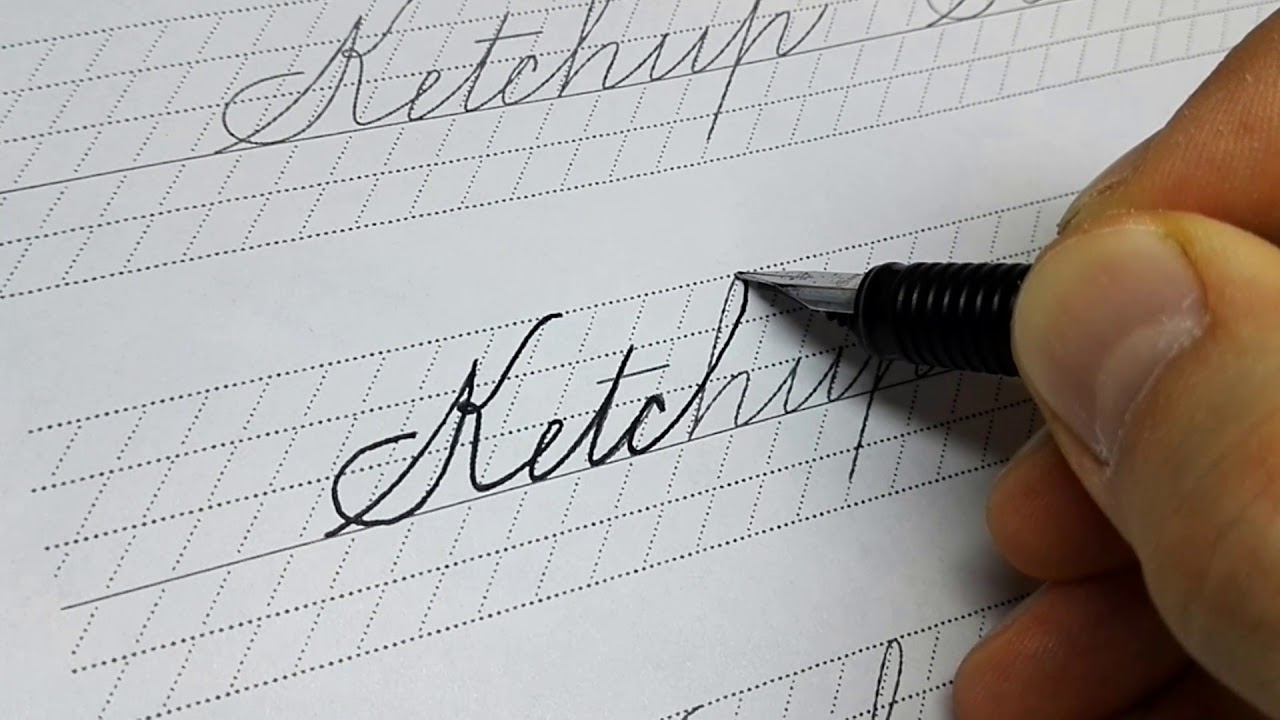 Ketchup
Ketchup